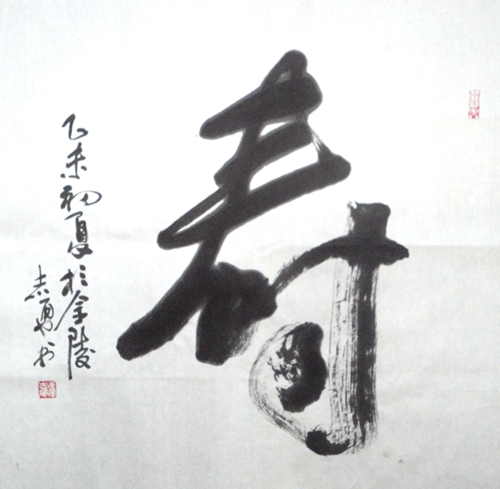 寿
乙未初夏於金陵
志勇书